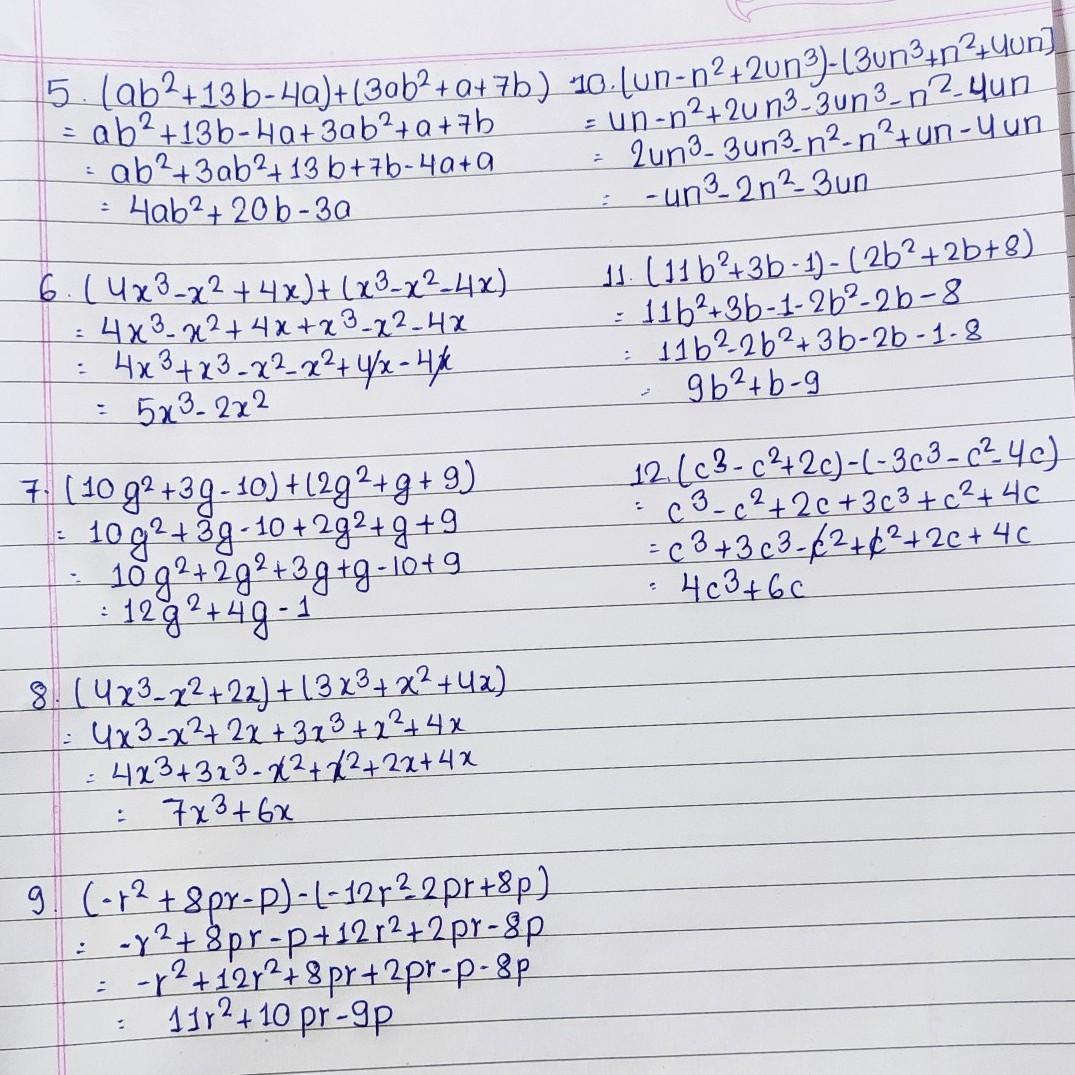 5. (ab²+13b-4a)+(3ab²+a+7b)
= ab²+13b-4a+3ab²+a+7b
= ab²+3ab²+13b+7b-4a+a
= 4ab²+20b-3a
6. (4x³-x²+4x)+(x³-x²-4x)
= 4x³-x²+4x+x³-x²-4x
= 4x³+x³-x²-x²+4x-4x
= 5x³-2x²
7. (10g²+3g-10)+(2g²+g+9)
= 10g²+3g-10+2g²+g+9
= 10g²+2g²+3g+g-10+9
= 12g²+4g-1
8. (4x³-x²+2x)+(3x³+x²+4x)
= 4x³-x²+2x+3x³+x²+4x
= 4x³+3x³-x²+x²+2x+4x
= 7x³+6x
9. (-r²+8pr-p)-(-12r²-2pr+8p)
= -r²+8pr-p+12r²+2pr-8p
= -r²+12r²+8pr+2pr-p-8p
= 11r²+10pr-9p
10. (un-n²+2un³)-(3un³+n²+4un]
= un-n²+2un³-3un³-n²-4un
= 2un³-3un³-n²-n²+un-4un
= -un³-2n²-3un
11. (11b²+3b-1)-(2b²+2b+8)
= 11b²+3b-1-2b²-2b-8
= 11b²-2b²+3b-2b-1-8
= 9b²+b-9
12. (c³-c²+2c)-(-3c³-c²-4c)
= c³-c²+2c+3c³+c²+4c
= c³+3c³-c²+c²+2c+4c
= 4c³+6c